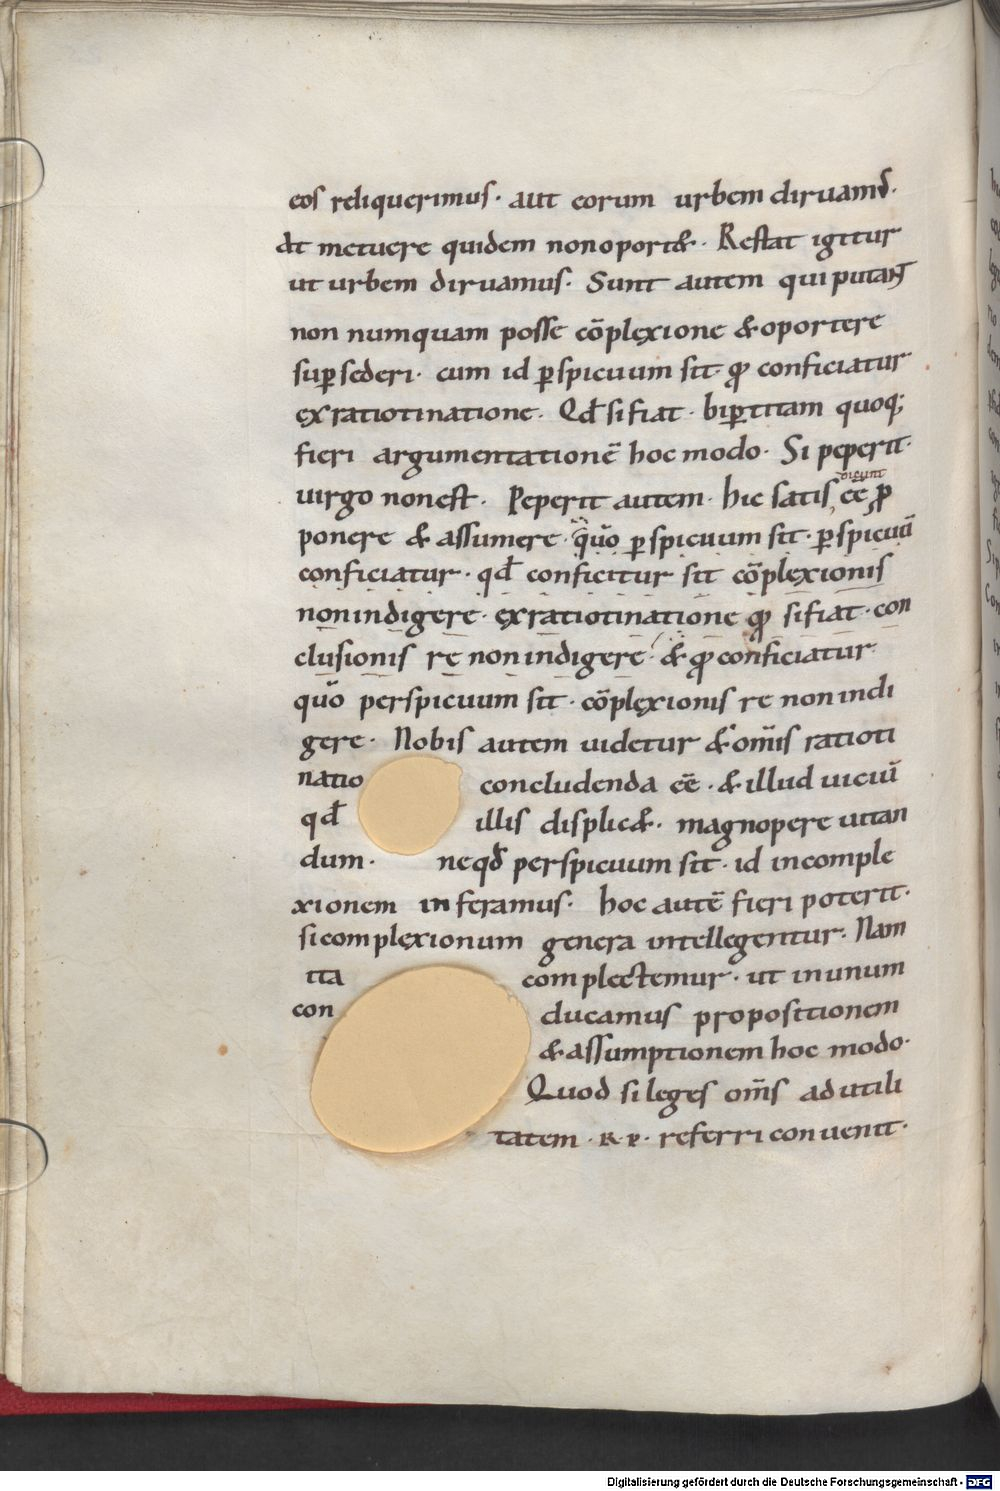 eos reliquerimus· aut eorum urbem diruam᷒·
At metuere quidem non oportet· Restat igitur
ut urbem diruamus· Sunt autem qui putant
non numquam posse cōplexione & oportere
suꝑsederi· cum id ꝑspicuum sit qđ conficiatur
ex ratiotinatione· Qđ si fiat· biꝑtitam quoq;
fieri argumentationē hoc modo· Si peperit·
uirgo non est· Peperit autem· hic satis eē ꝓ
dicunt
ponere & assumere· qūo ꝑspicuum sit· ꝑspicuū
conficiatur· qđ conficitur sit cōplexionis
non indigere· ex ratiotinatione qđ si fiat· con
clusionis re non indigere· & qđ conficiatur
qūo perspicuum sit· cōplexionis re non indi
gere· Nobis autem uidetur & om̄is ratioti
natio concludenda eē· & illud uiciū
qđ illis displicet· magnopere uitan
dum· ne qđ perspicuum sit· id in comple
xionem inferamus· hoc autē fieri poterit·
si complexionum genera intellegentur· Nam
ita complectemur· ut in unum
con ducamus propositionem
& assumptionem hoc modo·
Quod si leges om̄s ad utili
tatem· R· P· referri conuenit·
Digitalisierung gefördert durch die Deutsche Forschungsgemeinschaft - DFG